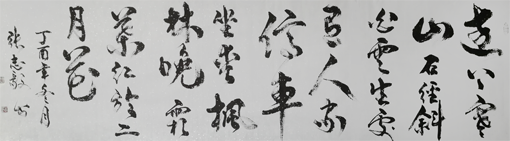 遠上寒
山石徑斜
白雲生處
有人家
停車
坐愛楓
林晚霜
葉紅於二
月花
丁酉年冬月
張志